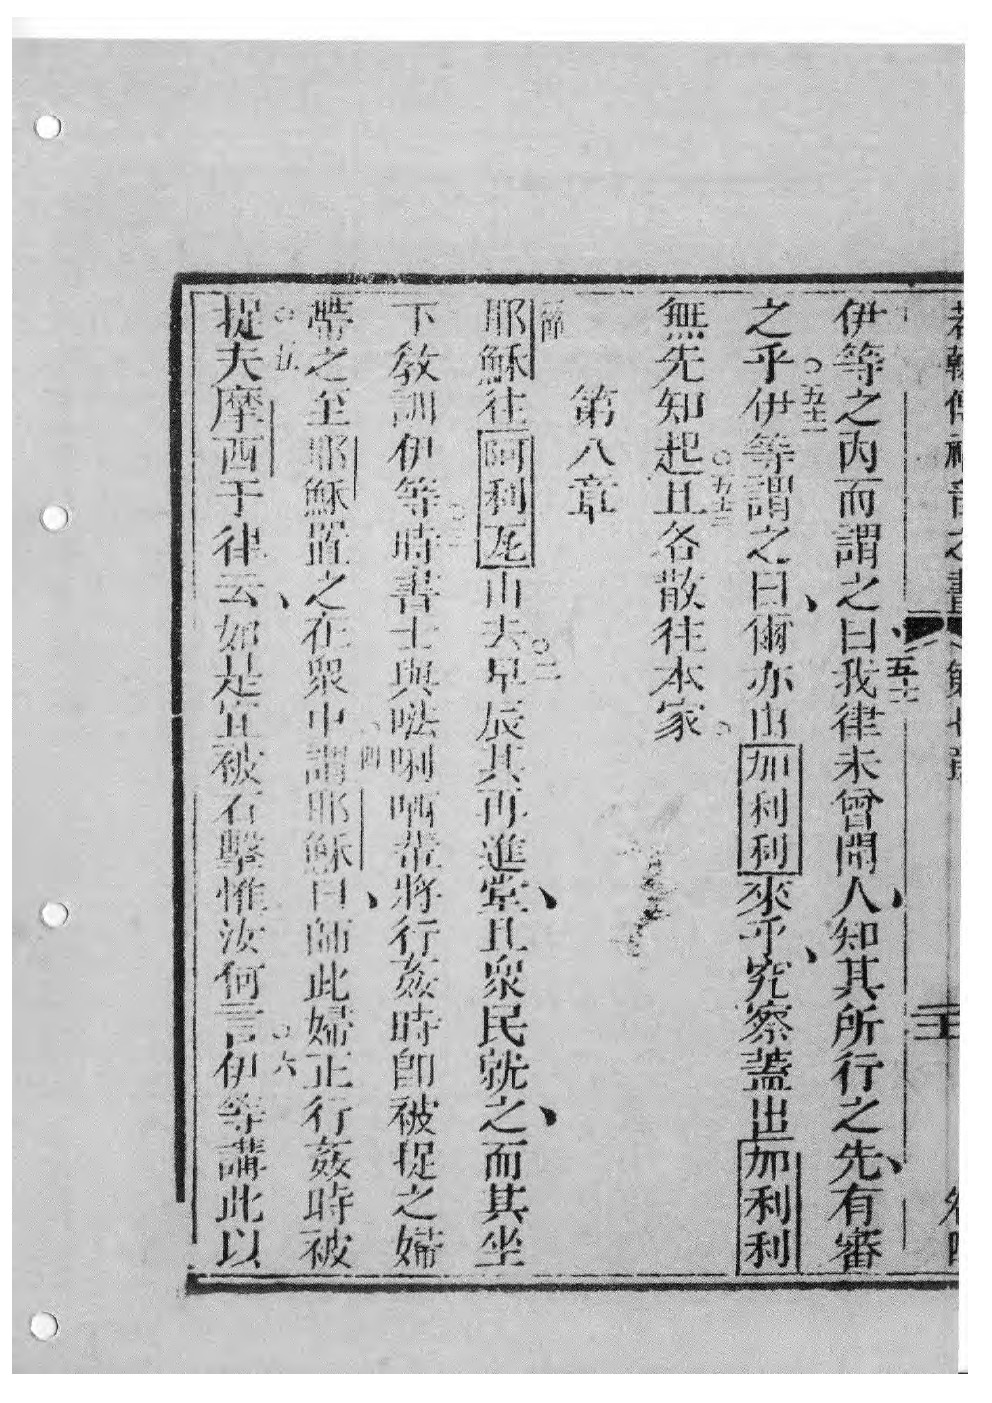 若翰傳福音之書 第七章
伊等之內而謂之曰五十一我律未曾聞人知其所行之先有審
之乎○五十二伊等謂之曰爾亦由加利利來乎究察蓋出加利利
無先知起○五十三且各散往本家
第八章
一節耶穌往阿利瓦山去○二早辰其再進堂且衆民就之而其坐
下教訓伊等○三時書士與𠵽唎哂輩將行姦時即被捉之婦
帶之至耶穌置之在衆中○四謂耶穌曰師此婦正行姦時被
捉○五夫摩西于律云如是宜被石擊惟汝何言○六伊等講此以